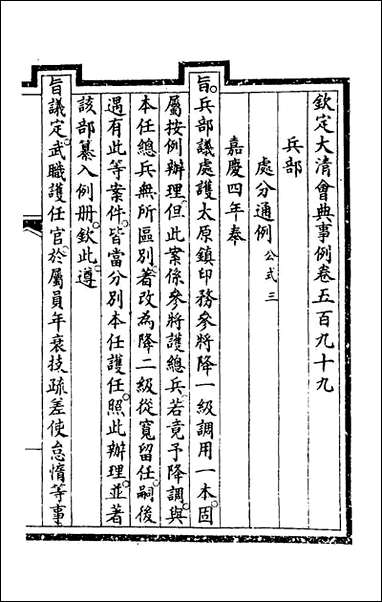 欽定大清會典事例卷五百九十九
兵部
處分通例 公式三
嘉慶四年奉
旨。兵部議處護太原鎮印務參將降一級調用一本。固
屬按例辦理。但此案係參將護總兵。若竟予降調。與
本任總兵無所區別。著改為降二級從寬留任。嗣後
遇有此等案件。皆當分別本任護任。照此辦理。並著
該部纂入例冊。欽此。遵
旨議定。武職護任官。於屬員年衰技疏差使怠惰等事